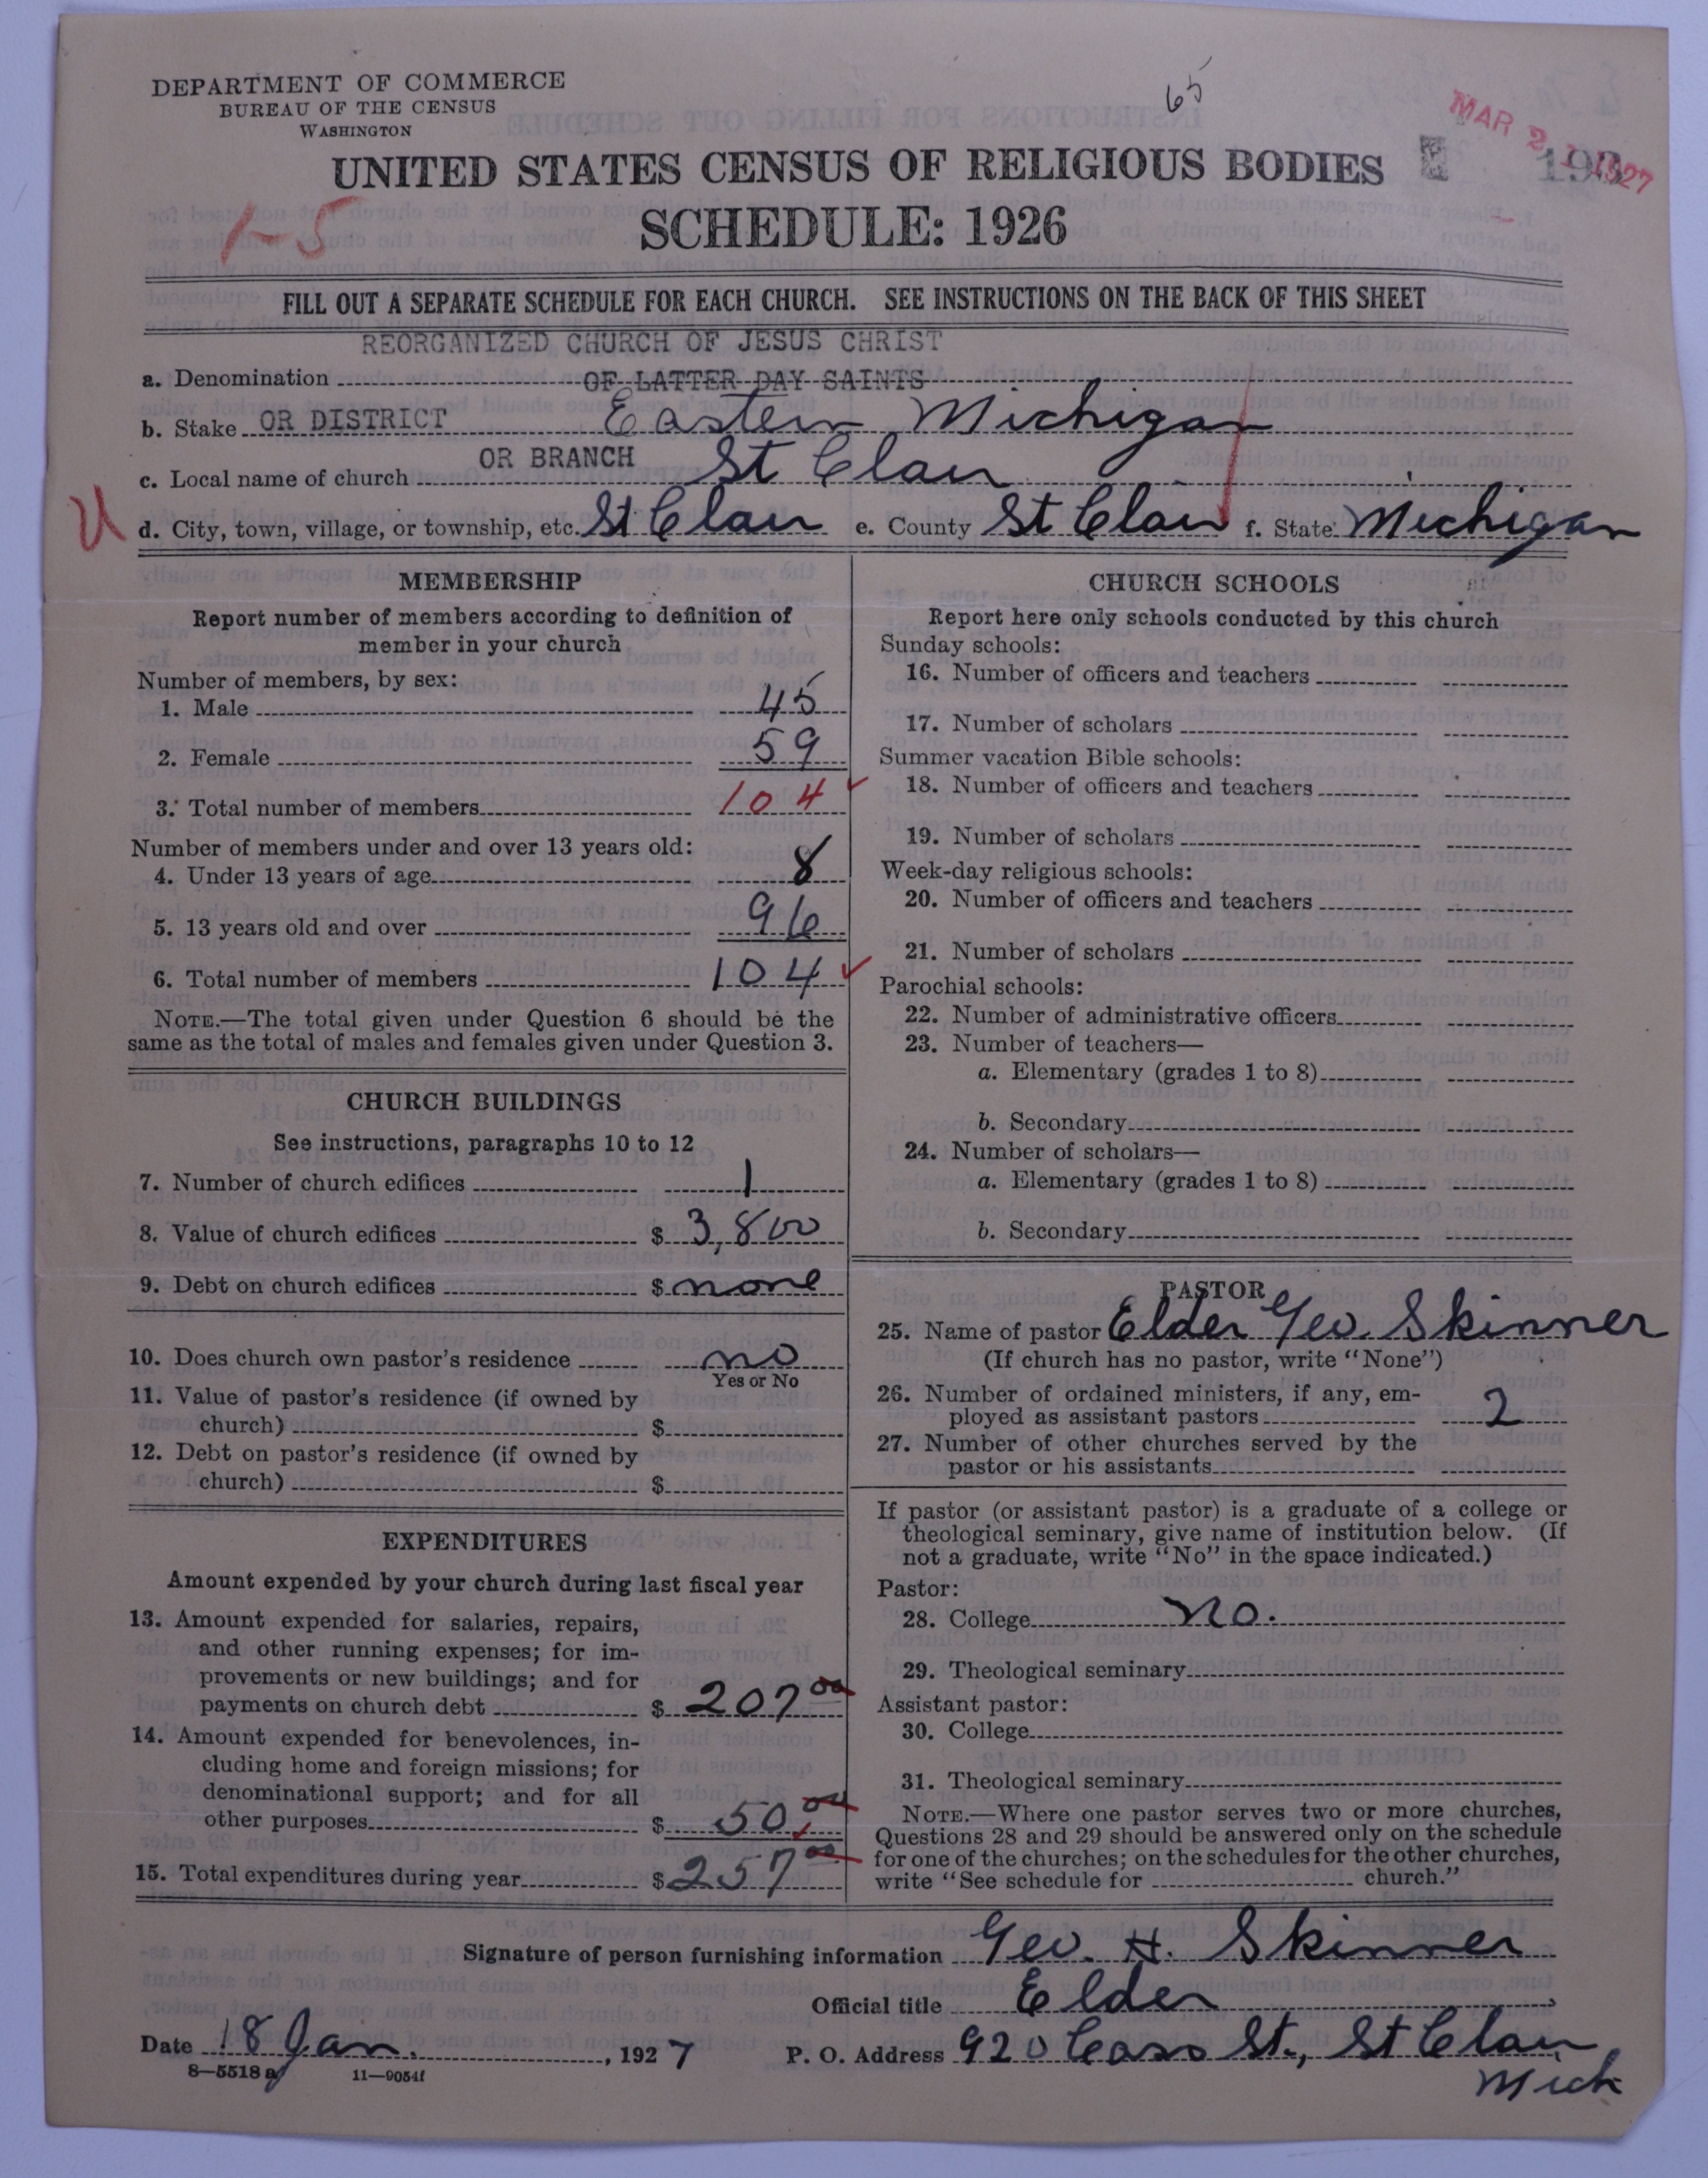 DEPARTMENT OF COMMERCE
BUREAU OF THE CENSUS
WASHINGTON
65
MAR 2 1927
UNITED STATES CENSUS OF RELIGIOUS BODIES
1-5
SCHEDULE: 1926
FILL OUT A SEPARATE SCHEDULE FOR EACH CHURCH. SEE INSTRUCTIONS ON THE BACK OF THIS SHEET
REORGANIZED CHURCH OF JESUS CHRIST
a. Denomination OF LATTER DAY SAINTS
b. Stake OR DISTRICT Eastern Michigan
c. Local name of church OR BRANCH St Clair
U d. City, town, village, or township, etc. St Clair e. County St Clair f. State Michigan
MEMBERSHIP
Report number of members according to definition of
member in your church
Number of members, by sex:
1. Male 45
2. Female 59
3. Total number of members 104
Number of members under and over 13 years old:
4. Under 13 years of age 8
5. 13 years old and over 96
6. Total number of members 104
NOTE.—The total given under Question 6 should be the
same as the total of males and females given under Question 3.
CHURCH BUILDINGS
See instructions, paragraphs 10 to 12
7. Number of church edifices 1
8. Value of church edifices $ 3,800
9. Debt on church edifices $ none
10. Does church own pastor's residence no
Yes or No
11. Value of pastor's residence (if owned by
church) $
12. Debt on pastor's residence (if owned by
church) $
EXPENDITURES
Amount expended by your church during last fiscal year
13. Amount expended for salaries, repairs,
and other running expenses; for im-
provements or new buildings; and for
payments on church debt $ 207 00
14. Amount expended for benevolences, in-
cluding home and foreign missions; for
denominational support; and for all
other purposes $ 50.00
15. Total expenditures during year $ 257 00
CHURCH SCHOOLS
Report here only schools conducted by this church
Sunday schools:
16. Number of officers and teachers
17. Number of scholars
Summer vacation Bible schools:
18. Number of officers and teachers
19. Number of scholars
Week-day religious schools:
20. Number of officers and teachers
21. Number of scholars
Parochial schools:
22. Number of administrative officers
23. Number of teachers—
a. Elementary (grades 1 to 8)
b. Secondary
24. Number of scholars—
a. Elementary (grades 1 to 8)
b. Secondary
PASTOR
25. Name of pastor Elder Geo. Skinner
(If church has no pastor, write "None")
26. Number of ordained ministers, if any, em-
ployed as assistant pastors 2
27. Number of other churches served by the
pastor or his assistants
If pastor (or assistant pastor) is a graduate of a college or
theological seminary, give name of institution below. (If
not a graduate, write "No" in the space indicated.)
Pastor:
28. College no.
29. Theological seminary
Assistant pastor:
30. College
31. Theological seminary
NOTE.—Where one pastor serves two or more churches,
Questions 28 and 29 should be answered only on the schedule
for one of the churches; on the schedules for the other churches,
write "See schedule for church."
Signature of person furnishing information Geo. H. Skinner
Official title Elder
Date 18 Jan. , 1927 P. O. Address 920 Cass St., St Clair
Mich
8—5518 a 11—9054f